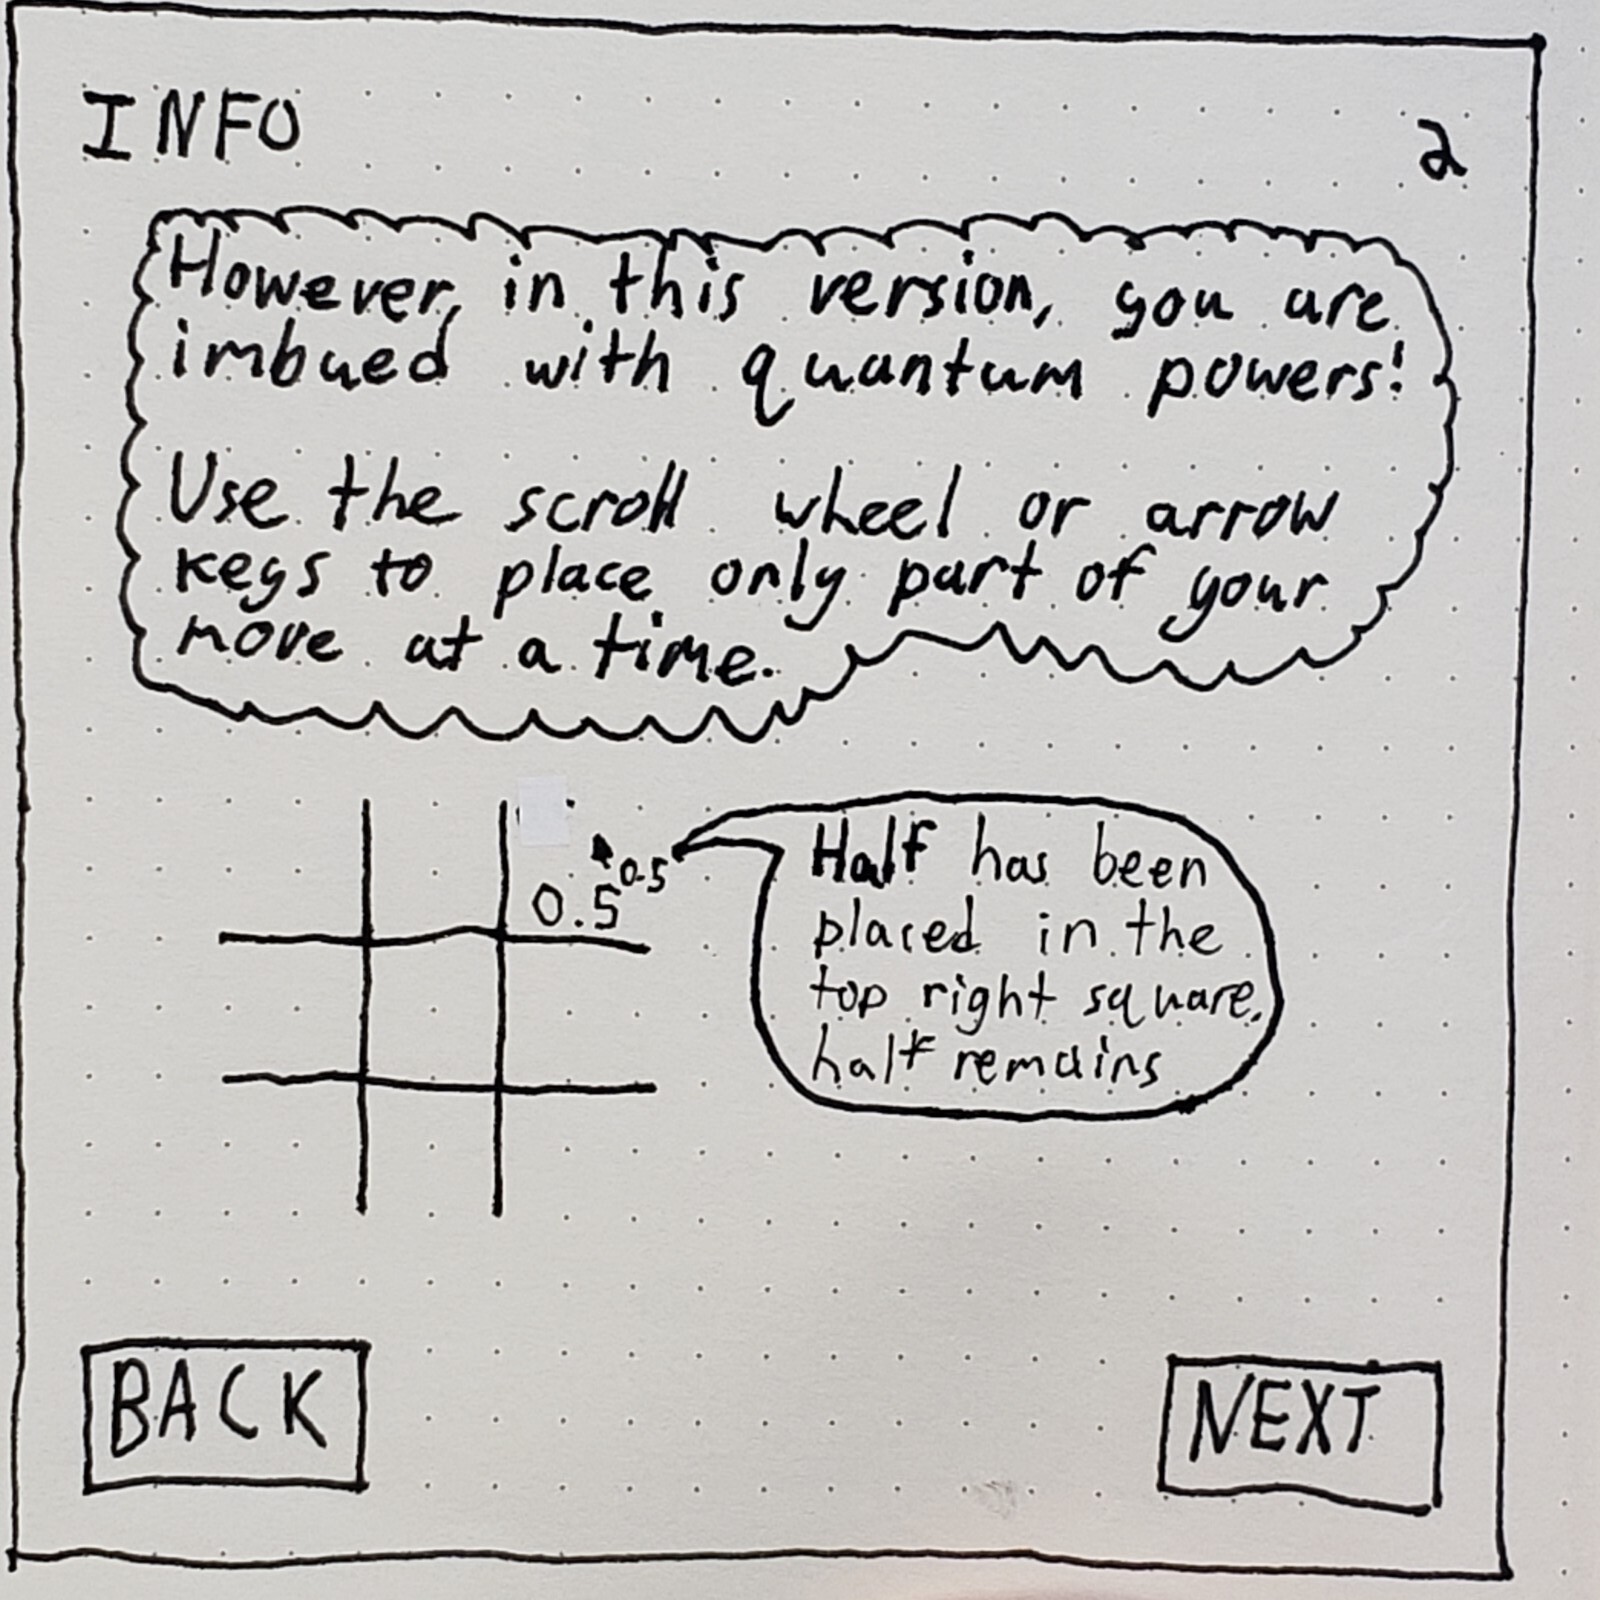 INFO
2
However, in this version, you are
imbued with quantum powers!
Use the scroll wheel or arrow
keys to place only part of your
move at a time.
0.5
0.5
Half has been
placed in the
top right square,
half remains
BACK
NEXT